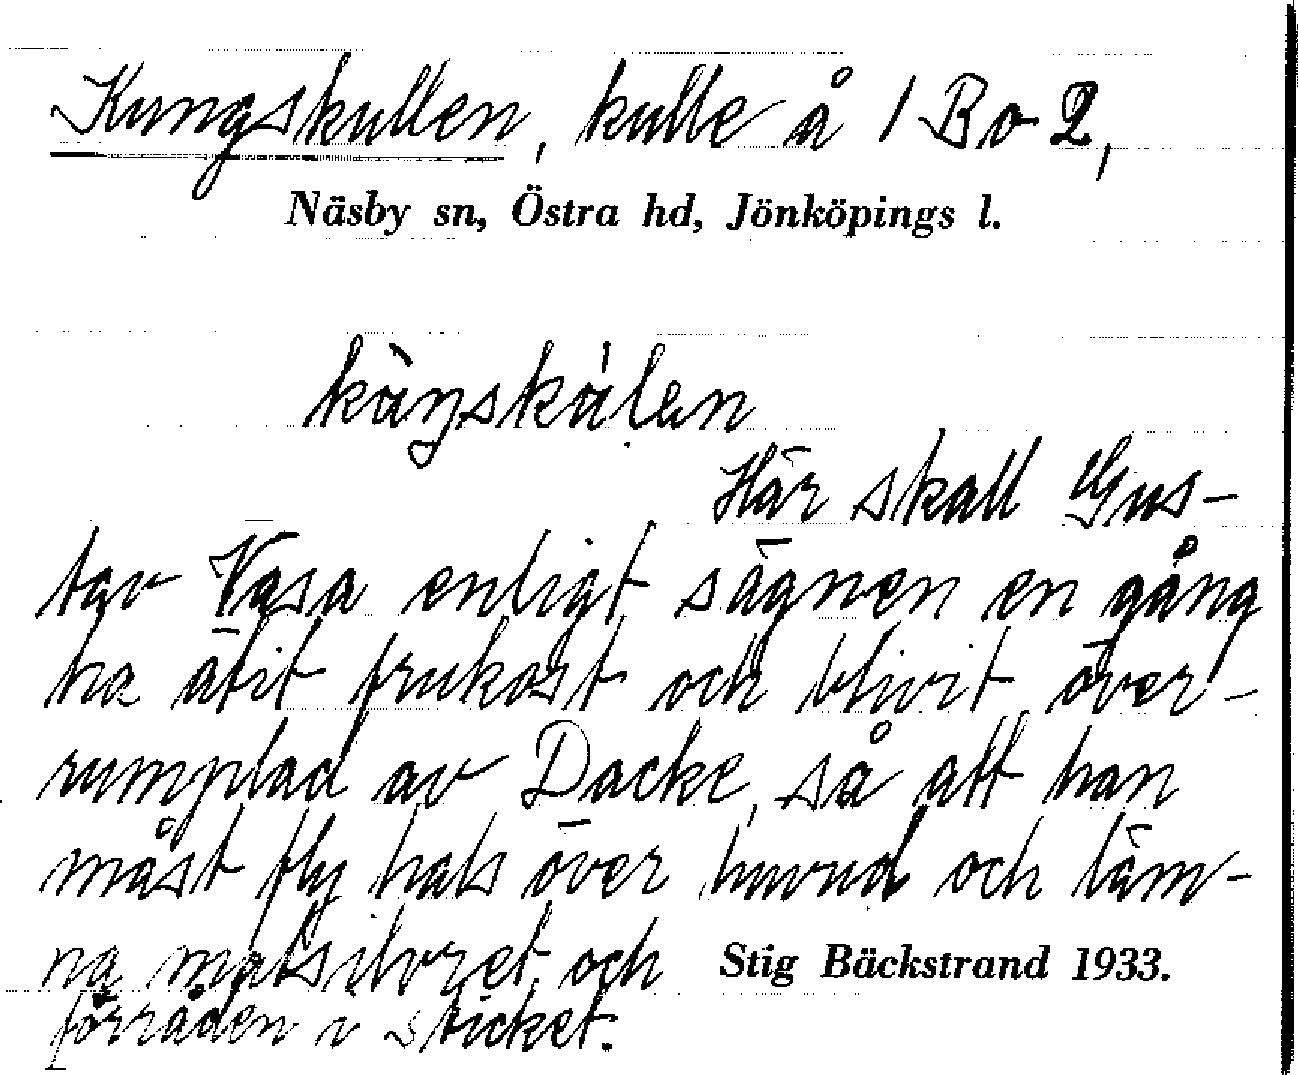 Kungskullen, kulle å 1 Bo 2,
Näsby sn, Östra hd, Jönköpings l.
Här skall Gus-
tav Vasa enligt sägnen en gång
ha ätit frukost och blivit över-
rumplad av Dacke, så att han
måst fly hals över huvud och läm-
na matsilvret och
förråden i sticket.
Stig Bäckstrand 1933.